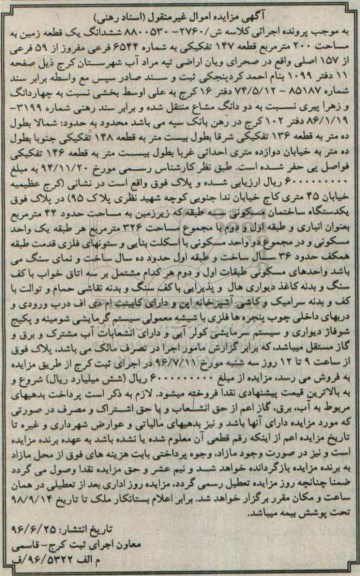 آگهی مزایده اموال غیرمنقول (اسناد رهنی)
به موجب پرونده اجرائی کلاسه ش/۲۷۶۰-۸۸۰۰۵۳۰ ششدانگ یک قطعه زمین به
مساحت ۲۰۰ مترمربع قطعه ۱۴۷ تفکیکی به شماره ۶۵۴۴ فرعی مفروز از ۵۹ فرعی
از ۱۵۷ اصلی واقع در صحرای ویان اراضی تپه مراد آب شهرستان کرج ذیل صفحه
۱۱ دفتر ۱۰۹۹ بنام احمد کردینجکی ثبت و سند صادر سپس مع واسطه برابر سند
شماره ۸۵۱۸۷ - ۷۴/۵/۱۲ دفتر ۱۶ کرج به علی اوسط بخشی نسبت به چهاردانگ
و زهرا پیری نسبت به دو دانگ مشاع منتقل شده و برابر سند رهنی شماره ۳۱۹۹-
۸۶/۱/۱۹ دفتر ۱۰۲ کرج در رهن بانک سپه می باشد محدود به حدود: شمالا بطول
ده متر به قطعه ۱۳۶ تفکیکی شرقا بطول بیست متر به قطعه ۱۴۸ تفکیکی جنوبا بطول
ده متر به خیابان دوازده متری احداثی غربا بطول بیست متر به قطعه ۱۴۶ تفکیکی
فواصل پی حفر شده است. طبق نظر کارشناس رسمی مورخ ۹۴/۱۱/۲۰ به مبلغ
۶۰۰۰۰۰۰۰۰۰ ریال ارزیابی شده و پلاک فوق واقع است در نشانی (کرج عظیمیه
خیابان ۴۵ متری کاج خیابان ندا جنوبی کوچه شهید نظری پلاک ۹۵) در پلاک فوق
یکدستگاه ساختمان مسکونی سه طبقه که زیرزمین به مساحت حدود ۴۴ مترمربع
بعنوان انباری و طبقه اول و دوم با مجموع مساحت ۳۲۶ مترمربع هر طبقه یک واحد
مسکونی و در مجموع دو واحد مسکونی با اسکلت بنایی و ستونهای فلزی قدمت طبقه
همکف حدود ۳۶ سال ساخت و طبقه اول حدود ده سال ساخت و نمای سنگ می
باشد واحدهای مسکونی طبقات اول و دوم هر کدام مشتمل بر سه اتاق خواب با کف
سنگ و بدنه کاغذ دیواری هال و پذیرایی با کف سنگ و بدنه نقاشی حمام و توالت با
کف و بدنه سرامیک و کاشی آشپزخانه اپن و دارای کابینت ام دی اف درب ورودی و
دربهای داخلی چوب پنجره ها فلزی با شیشه معمولی سیستم گرمایشی شومینه و پکیج
شوفاژ دیواری و سیستم سرمایشی کولر آبی و دارای انشعابات آب مشترک و برق و
گاز مستقل میباشد. که برابر گزارش مامور اجرا در تصرف مالک می باشد. پلاک فوق
از ساعت ۹ تا ۱۲ روز سه شنبه مورخ ۹۶/۷/۱۱ در اجرای ثبت کرج از طریق مزایده
به فروش می رسد. مزایده از مبلغ ۶۰۰۰۰۰۰۰۰۰ ریال (شش میلیارد ریال) شروع و
به بالاترین قیمت پیشنهادی نقدا فروخته میشود. لازم به ذکر است پرداخت بدهیهای
مربوط به آب، برق، گاز اعم از حق انشعاب و یا حق اشتراک و مصرف در صورتی
که مورد مزایده دارای آنها باشد و نیز بدهیهای مالیاتی و عوارض شهرداری و غیره تا
تاریخ مزایده اعم از اینکه رقم قطعی آن معلوم شده یا نشده باشد به عهده برنده مزایده
است و نیز در صورت وجود مازاد، وجوه پرداختی بابت هزینه های فوق از محل مازاد
به برنده مزایده بازگردانده خواهد شد و نیم عشر و حق مزایده نقدا وصول می گردد
ضمنا چنانچه روز مزایده تعطیل رسمی گردد، مزایده روز اداری بعد از تعطیلی در همان
ساعت و مکان مقرر برگزار خواهد شد. برابر اعلام بستانکار ملک تا تاریخ ۹۸/۹/۱۴
تحت پوشش بیمه میباشد.
تاریخ انتشار: ۹۶/۶/۲۵
معاون اجرای ثبت کرج- قاسمی
م الف ۹۶/۵۳۲۲/ف